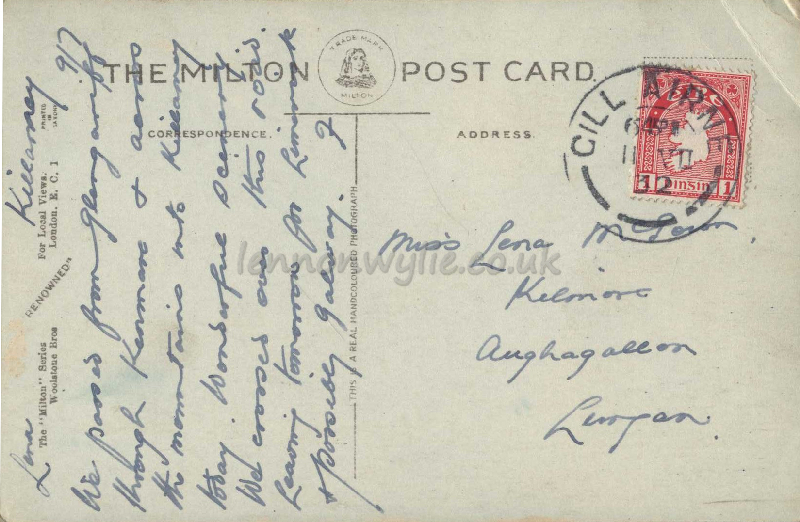 THE MILTON POST CARD.
TRADE MARK
MILTON
CORRESPONDENCE.
ADDRESS.
Killarney 9/7
Lena
We passed from Glengarriff
through Kenmare & across
the mountains into Killarney
today. Wonderful scenery
We crossed over this road.
Leaving tomorrow for Limerick
& possibly Galway.
THIS IS A REAL HANDCOLOURED PHOTOGRAPH
The "Milton" Series
Woolstone Bros
"RENOWNED"
For Local Views.
London. E. C. 1
PRINTED
IN
CILL AIRNE
12
1 PINSIN 1
Miss Lena
Kilmore
Aughagallon
Lurgan.
lennonwylie.co.uk